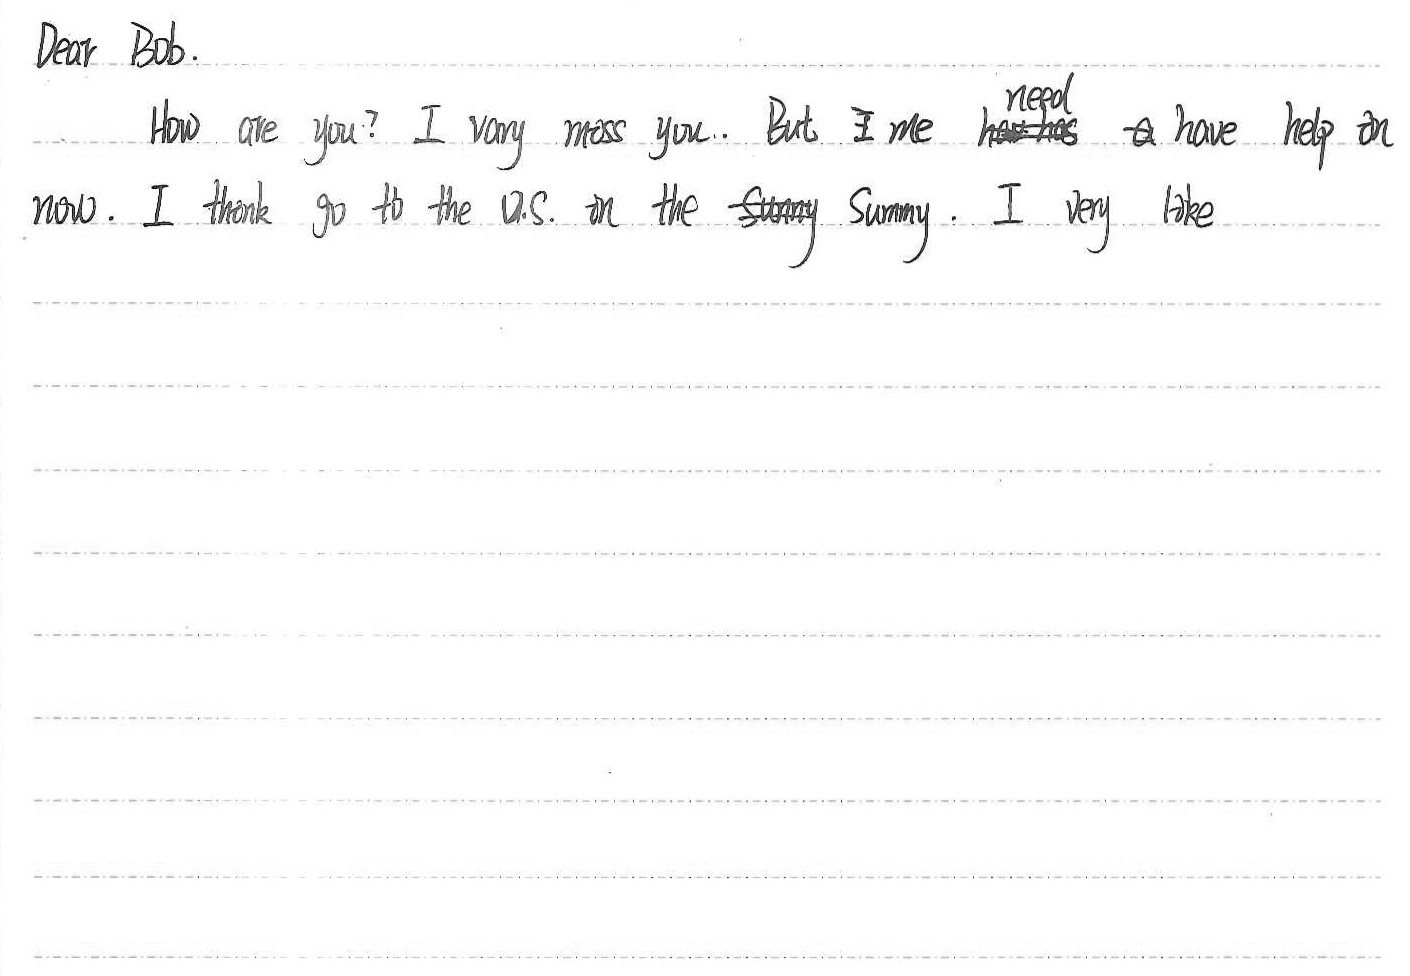 Dear Bob.
How are you? I vary miss you.. But I me need have help in
now. I think go to the U.S. in the Sunny Summy. I very like